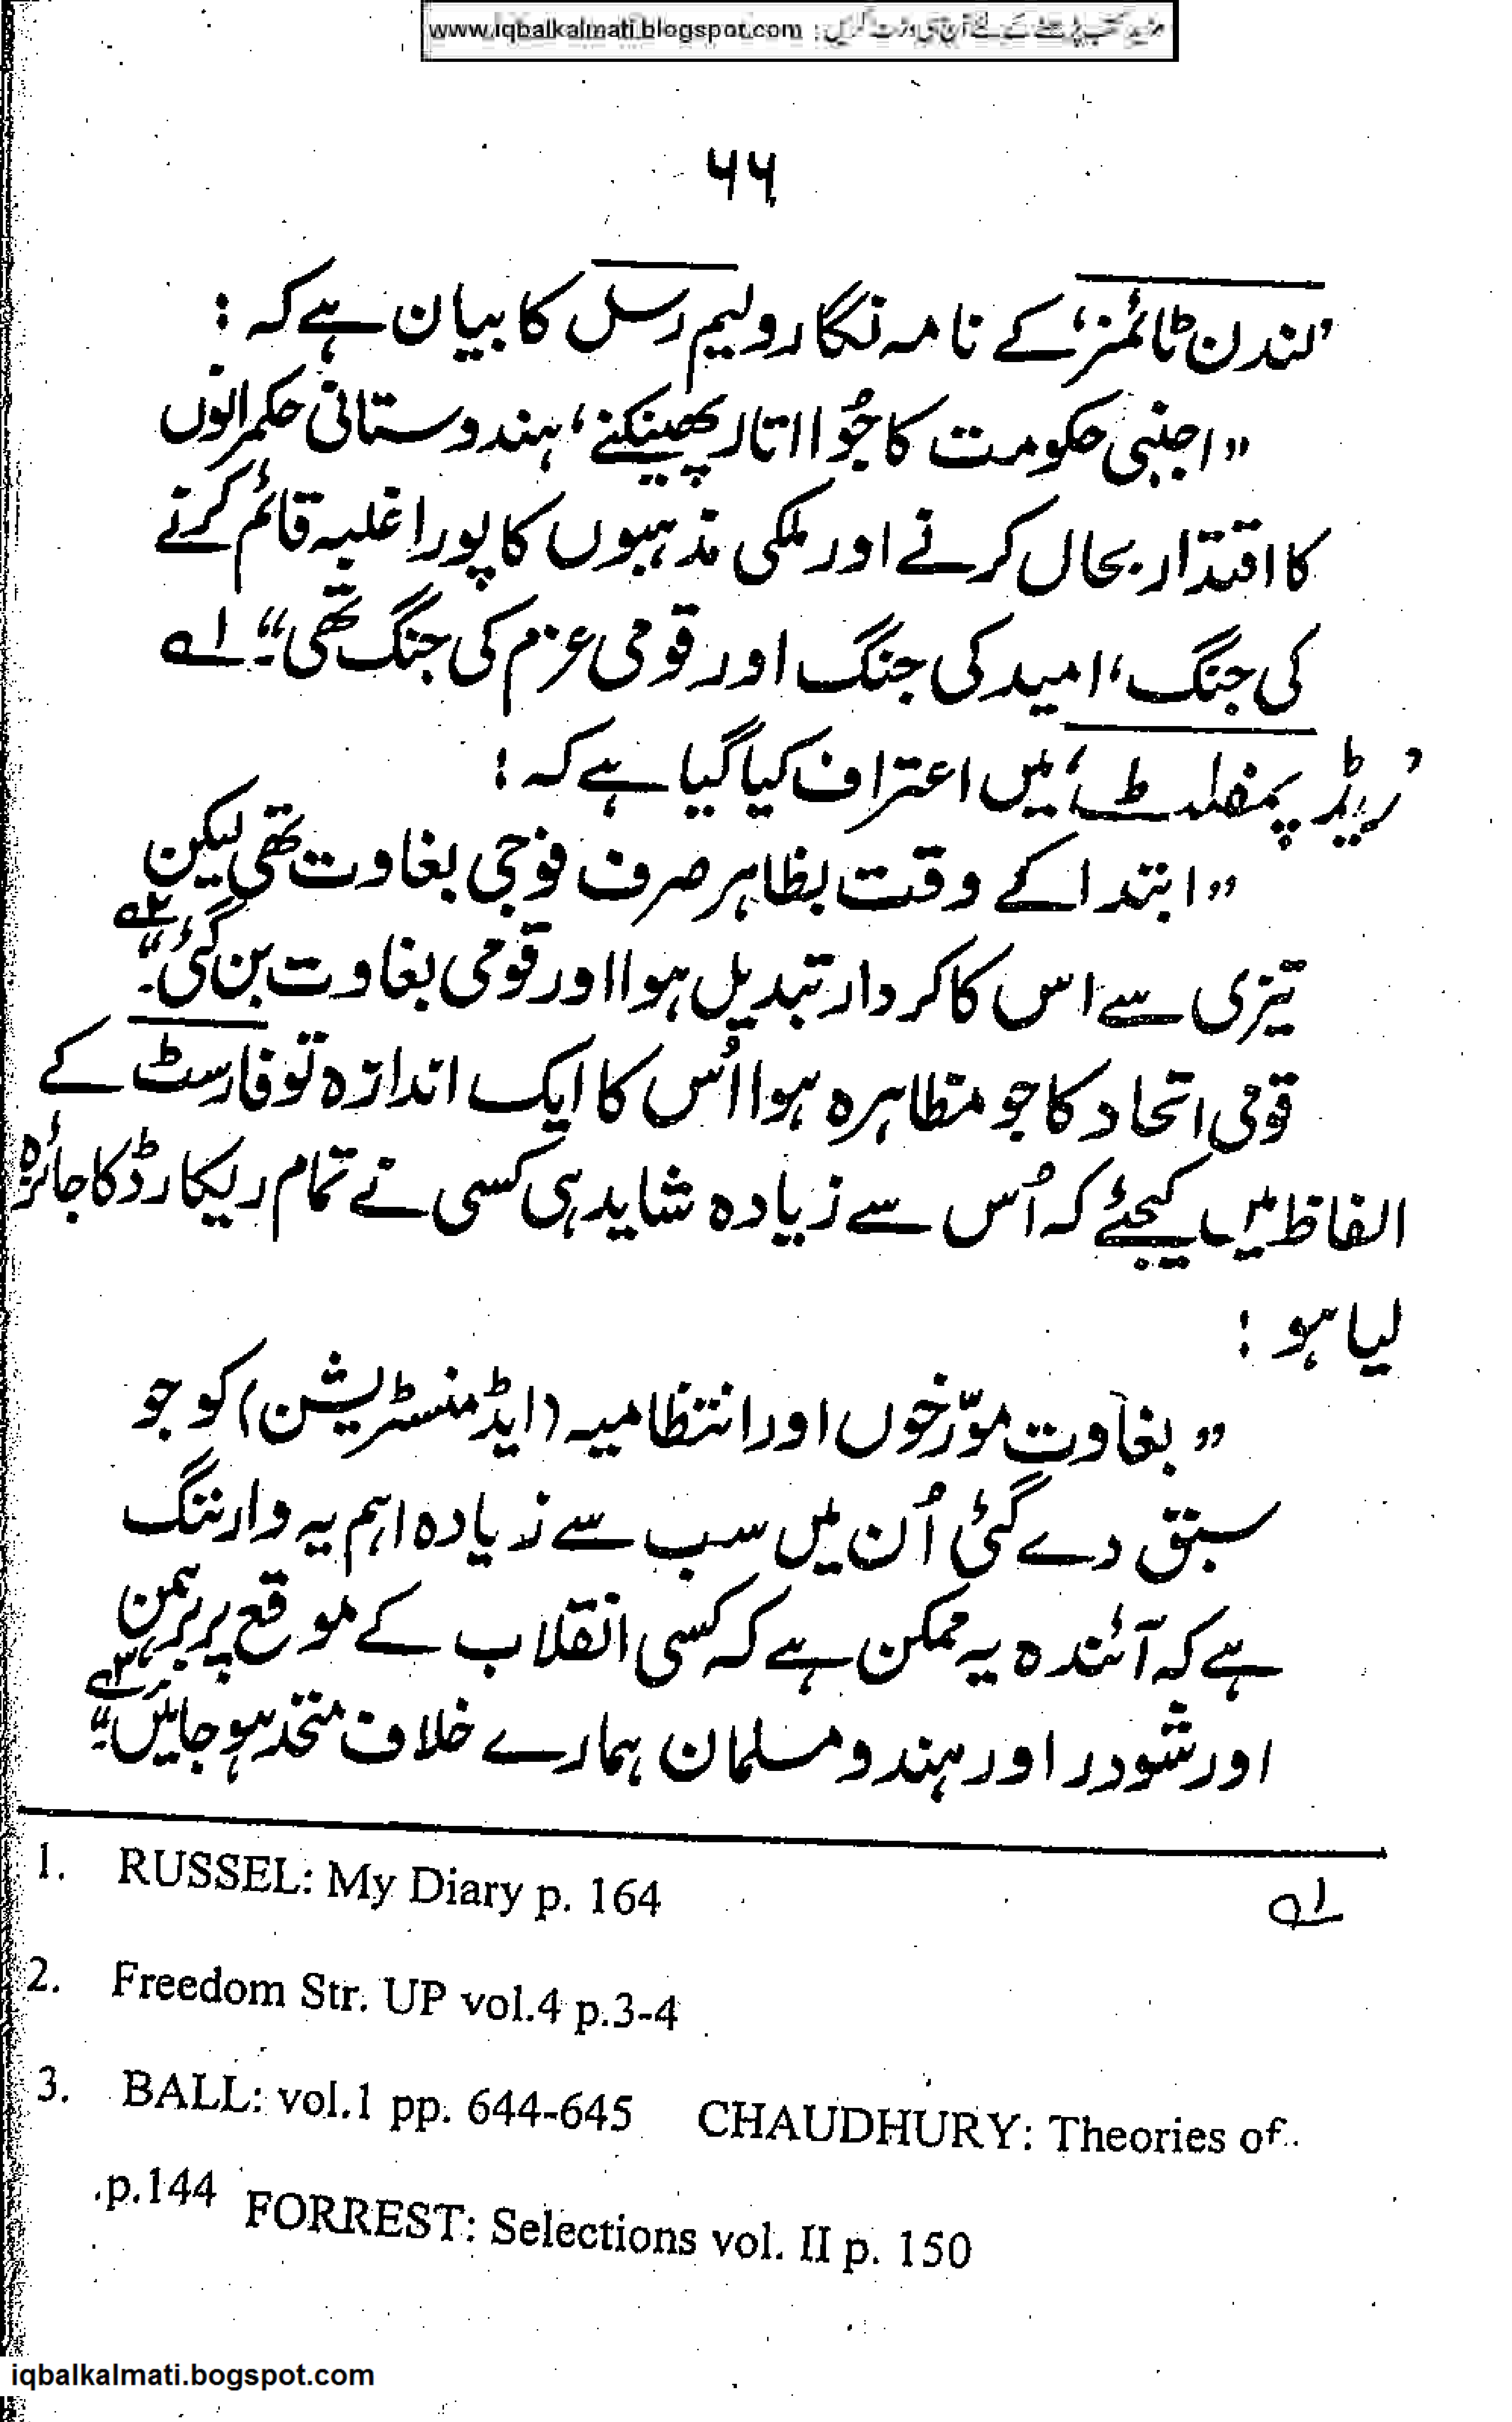 www.iqbalkalmati.blogspot.com : مزید کتب پڑھنے کے لئے آج ہی وزٹ کریں
۶۶
’لندن ٹائمز‘ کے نامہ نگار ولیم رسل کا بیان ہے کہ :
”اجنبی حکومت کا جُوا اتار پھینکنے، ہندوستانی حکمرانوں
کا اقتدار بحال کرنے اور ملکی مذہبوں کا پورا غلبہ قائم کرنے
کی جنگ، امید کی جنگ اور قومی عزم کی جنگ تھی۔“ ۱ے
’ریڈ پمفلٹ‘ میں اعتراف کیا گیا ہے کہ :
”ابتدا کے وقت بظاہر صرف فوجی بغاوت تھی لیکن
تیزی سے اس کا کردار تبدیل ہوا اور قومی بغاوت بن گئی۔“ ۲ے
قومی اتحاد کا جو مظاہرہ ہوا اُس کا ایک اندازہ تو فارسٹ کے
الفاظ میں کیجئے کہ اُس سے زیادہ شاید ہی کسی نے تمام ریکارڈ کا جائزہ
لیا ہو :
”بغاوت مورّخوں اور انتظامیہ (ایڈمنسٹریشن) کو جو
سبق دے گئی اُن میں سب سے زیادہ اہم یہ وارننگ
ہے کہ آئندہ یہ ممکن ہے کہ کسی انقلاب کے موقع پر برہمن
اور شودر اور ہندو مسلمان ہمارے خلاف متحد ہو جائیں۔“ ۳ے
۱ے
1. RUSSEL: My Diary p. 164
2. Freedom Str. UP vol.4 p.3-4
3. BALL: vol.1 pp. 644-645 CHAUDHURY: Theories of..
.p.144 FORREST: Selections vol. II p. 150
iqbalkalmati.bogspot.com